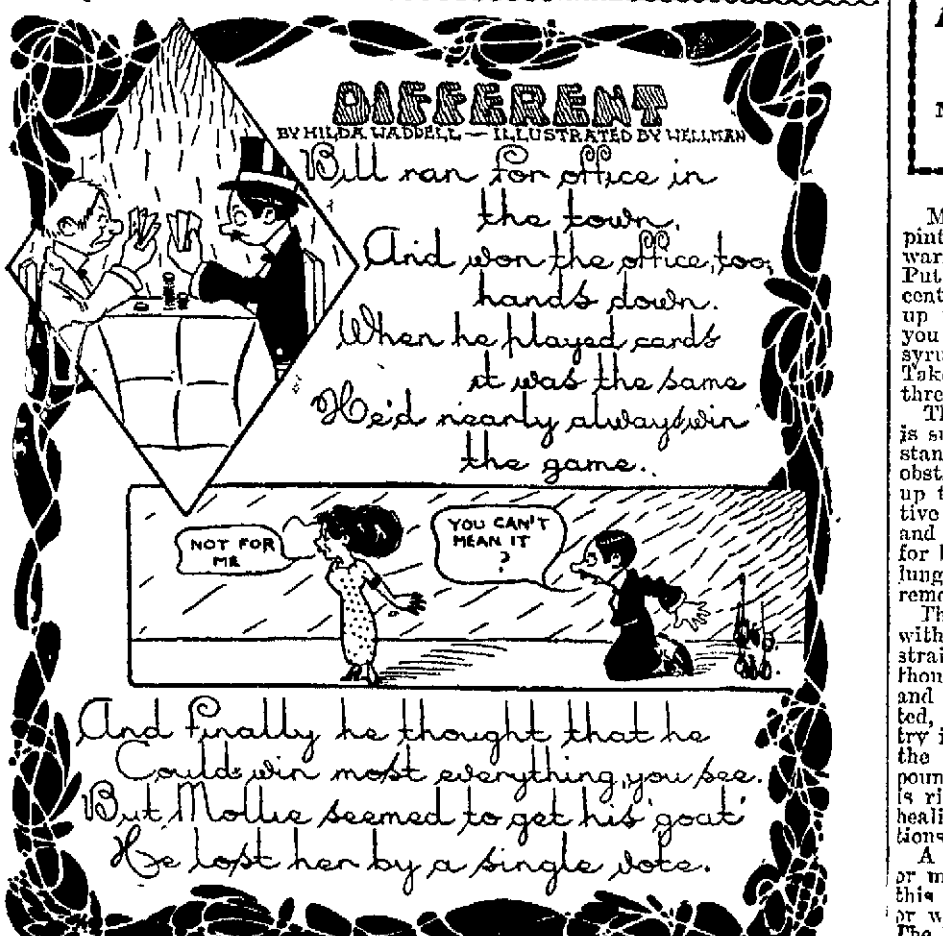 DIFFERENT
BY HILDA WADDELL — ILLUSTRATED BY WELLMAN
Bill ran for office in
the town,
And won the office, too,
hands down.
When he played cards
it was the same
He'd nearly always win
the game.
NOT FOR
ME
YOU CAN'T
MEAN IT
?
And finally he thought that he
Could win most everything, you see.
But Mollie seemed to get his 'goat'
He lost her by a single vote.
pint
Put
cent
up
you
syru
Take
thre
Th
is su
stan
obst
up t
tive
and
for
lung
remo
Th
with
strai
thou
and
ted,
try i
the
poun
is ri
heali
tions
A
or m
this
or w
The